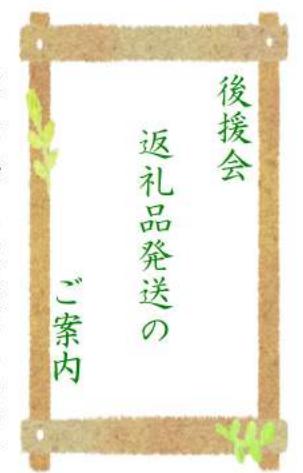 後援会
返礼品発送の
ご案内